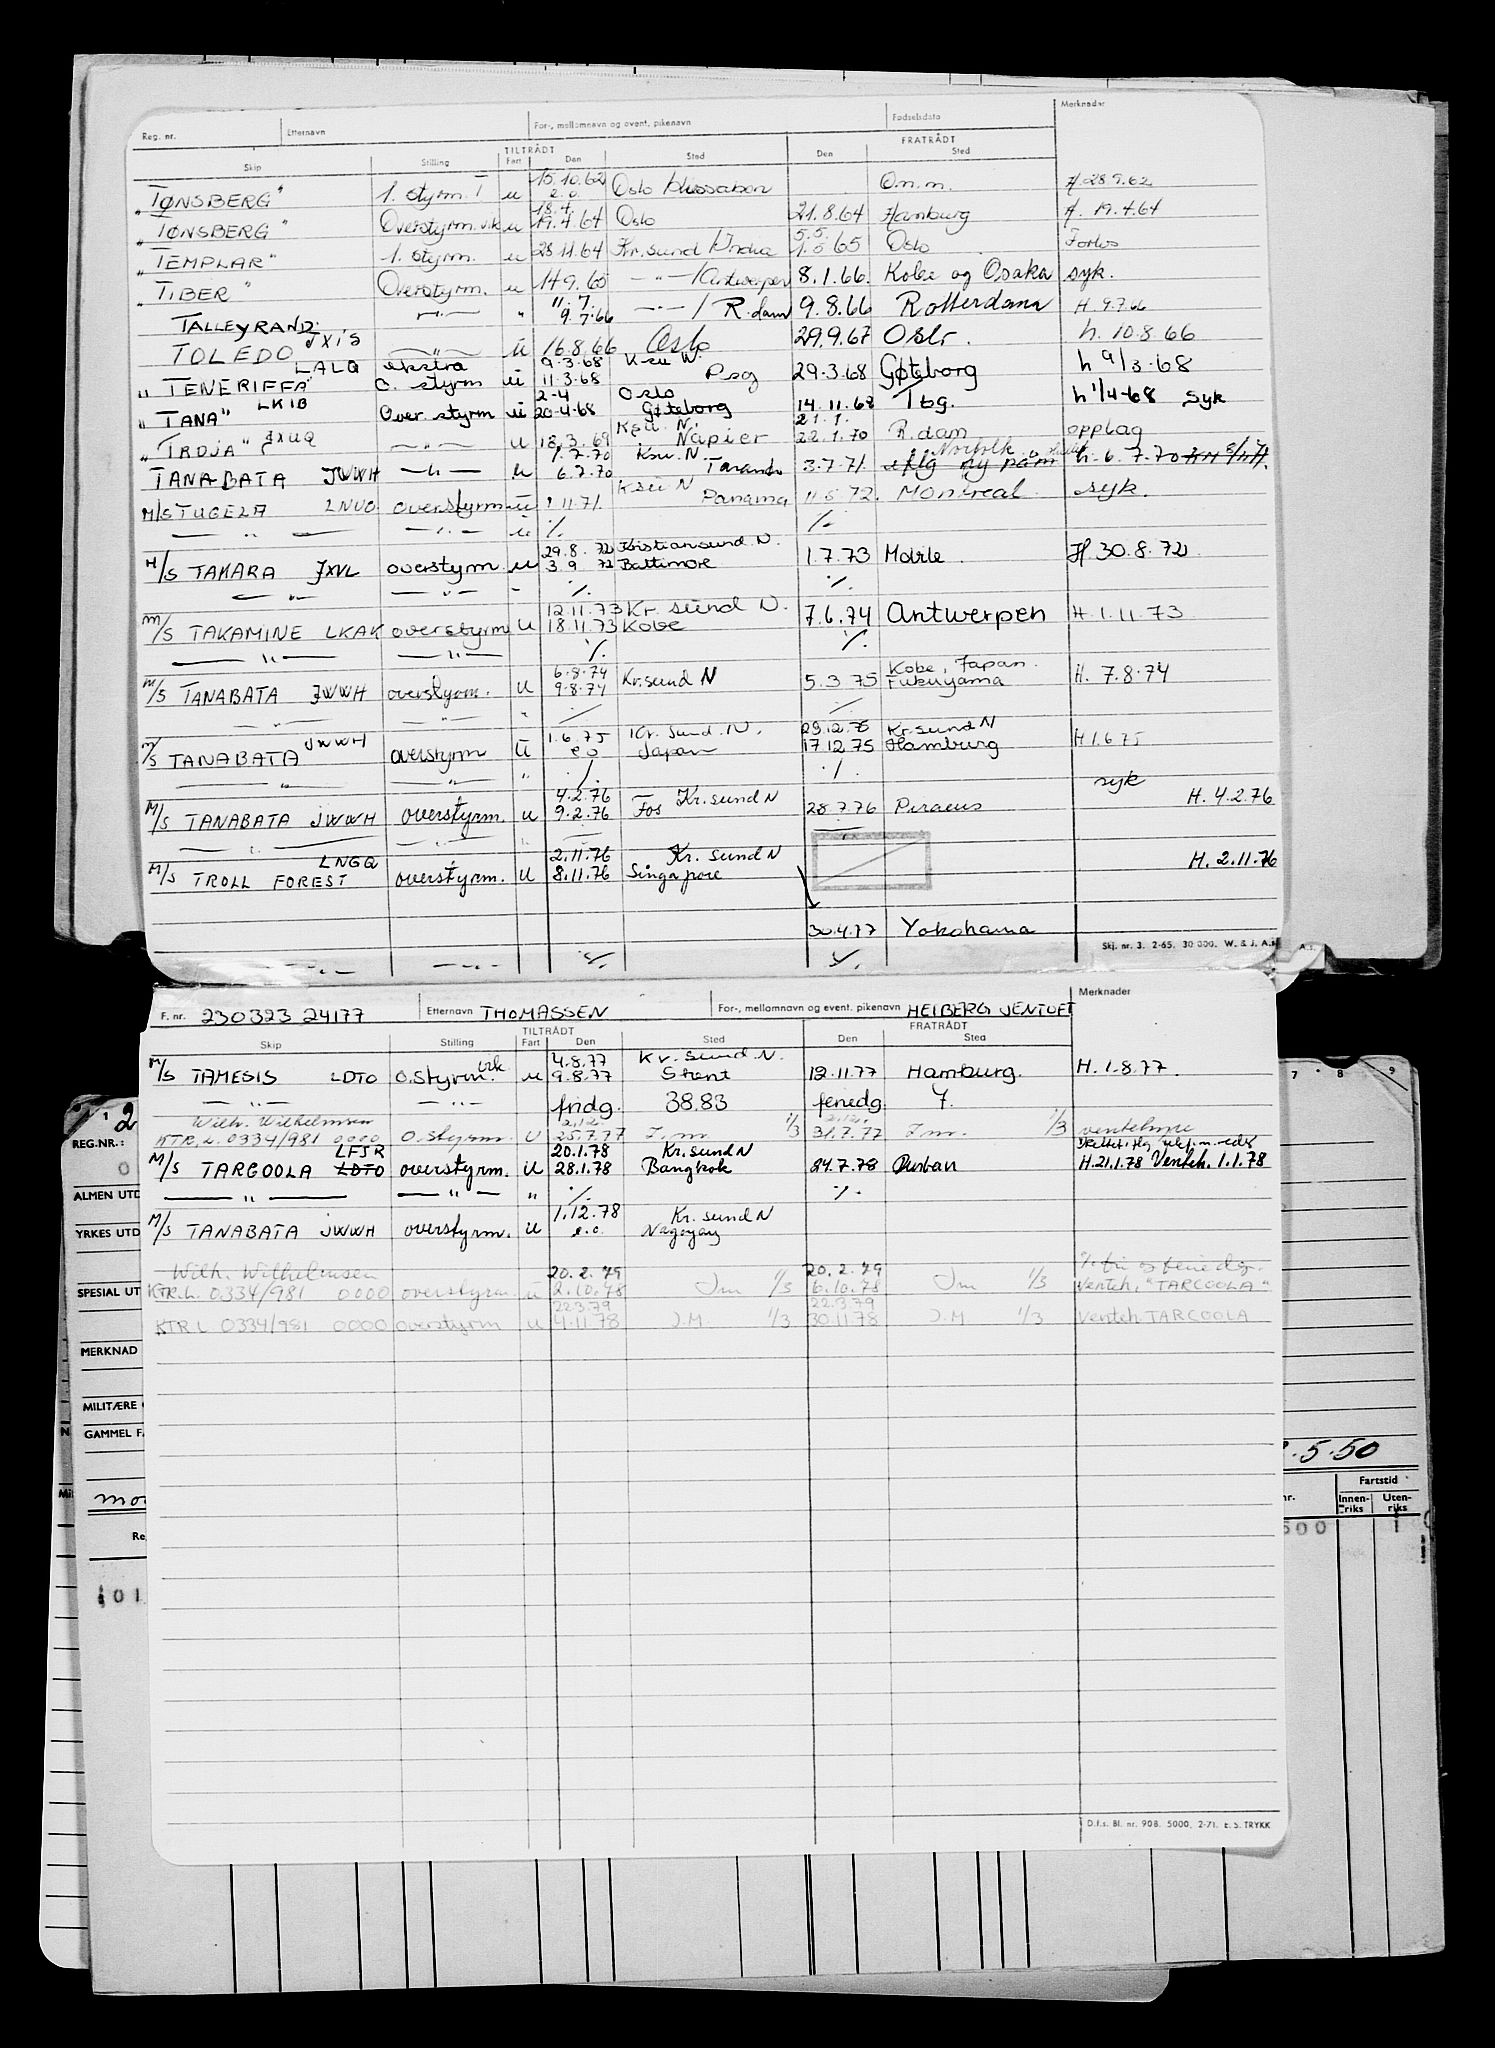 Reg. nr. Etternavn For-, mellomnavn og event. pikenavn Fødselsdato Merknader
TILTRÅDT FRATRÅDT
Skip Stilling Fart Den Sted Den Sted
"TØNSBERG" 1. styrm. I u 15.10.62 Oslo On.m. H 28.9.62
"TØNSBERG" Overstyrm. vik u 18.4. 19.4.64 Oslo 21.8.64 Hamburg H. 19.4.64
"TEMPLAR" 1. styrm. u 28.11.64 Kr.sund 5.5. 1.5.65 Oslo
"TIBER" Overstyrm. u 14.9.65 — " — / Antwerpen 8.1.66. Kobe og Osaka syk.
TALLEYRAND. — " — " 11.7. 9.7.66 — " — / R.dam 9.8.66 Rotterdam H 9.7.66
TOLEDO JXIS — " — u 16.8.66 Oslo 29.9.67 Oslo. h. 10.8.66
"TENERIFFA" LALQ ekstra o. styrm u 9.3.68 11.3.68 Ksu N. Psg 29.3.68 Gøteborg h 9/3-68
"TANA" LKIB Over.styrm u 2-4 20-4-68 Oslo Gøteborg 14.11.68 Tbg. h 1/4-68 syk
"TROJA" JXUQ — " — u 18.3.69 Ksu. N. Napier 21.1. 22.1.70 R.dam opplag
TANABATA JWWH — " — u 1.7.70 6.7.70 Ksu. N. Taranto 3.7.71. Norfolk h. 6.7.70
M/S TUGELA LNVO overstyrm u 1 11.71. Ksu N Panama 11.5.72. Montreal syk.
— " — u ./. ./.
M/S TAKARA JXVL overstyrm. u 29.8.72 3.9 72 Kristiansund N. Baltimore 1.7.73 H 30.8.72
— " — — " — - ./. ./.
M/S TAKAMINE LKAK overstyrm u 12.11.73 18.11.73 Kr. sund N. Kobe 7.6.74 Antwerpen H. 1.11.73
— " — — " — ./. ./.
M/S TANABATA JWWH overstyrm. u 6.8.74 9.8.74 Kr.sund N 5.3.75 Kobe, Japan. Fukuyama H. 7.8.74
— " — — " — " ./. ./.
M/S TANABATA JWWH overstyrm u 1.6.75 e.o Kr. sund. N. Japan 29.12.75 17.12.75 Kr.sund N Hamburg H 1.6.75
— " — — " — " ./. ./. syk
M/S TANABATA JWWH overstyrm. u 4.2.76 9.2.76 Fos Kr.sund N 28.7.76 Piraeus H. 4.2.76
— " — — " — "
M/S TROLL FOREST LNGQ overstyrm. u 2.11.76 8.11.76 Kr. sund N Singapore H. 2.11.76
30.4.77 Yokohama
— " — — " — ./. ./.
Skj. nr. 3. 2-65. 30 000. W. & J. A.
F. nr. 230323 24177 Etternavn THOMASSEN For-, mellomnavn og event. pikenavn HEIBERG VENTOFT Merknader
TILTRÅDT FRATRÅDT
Skip Stilling Fart Den Sted Den Sted
M/S TAMESIS LDTO O.styrm. vik u 4.8.77 9.8.77 Kr. sund N. 12.11.77 Hamburg. H. 1.8.77.
— " — — " — fridg. 38.83 feriedg. 7.
Wilh. Wilhelmsen
KTR.L. 0334/981 0000 O.styrm. u 25.7.77 I.m 1/3 31.7.77 I.m. 1/3 ventehyre
M/S TARCOOLA LFJR LDTO overstyrm. u 20.1.78 28.1.78 Kr.sund N Bangkok 24.7.78 Durban H.21.1.78 Venteh. 1.1.78
— " — — " — " ./. ./.
M/S TANABATA JWWH overstyrm. u 1.12.78 e.o. Kr. sund N
Wilh. Wilhelmsen 20.2.79 20.2.79 ./. fri og feriedg.
KTR.L. 0334/981 0000 overstyrm. u 2.10.78 I.m 1/3 6.10.78 I.m 1/3 Venteh. "TARCOOLA"
22.3.79 22.3.79
KTR L 0334/981 0000 overstyrm u 4.11.78 I.M. 1/3 30.11.78 I.M 1/3 Venteh. TARCOOLA
D.f.s. Bl. nr. 908. 5000. 2-71. E. S. TRYKK
REG.NR.: 2
0
ALMEN UTD
YRKES UTD
SPESIAL UT
MERKNAD
MILITÆRE
GAMMEL F
.5.50
Fartstid
nr. Innen-riks Uten-riks
500 1
Re
101
7 8 9